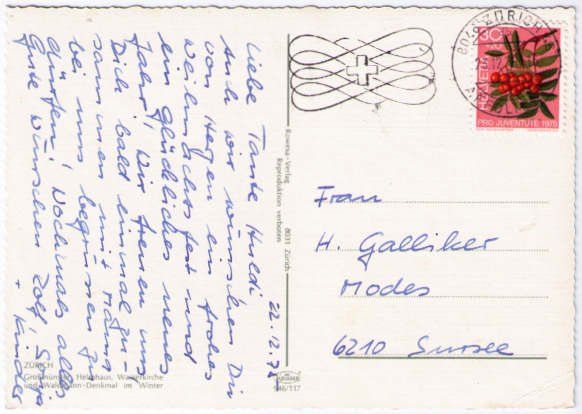 22.12.78
Liebe Tante Huldi
Auch wir wünschen Dir
von Herzen ein frohes
Weihnachtsfest und
ein glückliches neues
Jahr! Wir freuen uns
Dich bald einmal zu-
sammen mit Hans
bei uns begrüssen zu
dürfen! Nochmals alles
Gute wünschen Rolf
+ Kinder
ZÜRICH
Grossmünster, Helmhaus, Wasserkirche
und Waldmann-Denkmal im Winter
Rowesa-Verlag 8031 Zürich
Reproduktion verboten
946/117
ZÜRICH
30
HELVETIA
PRO JUVENTUTE 1975
Frau
H. Galliker
Modes
6210 Sursee